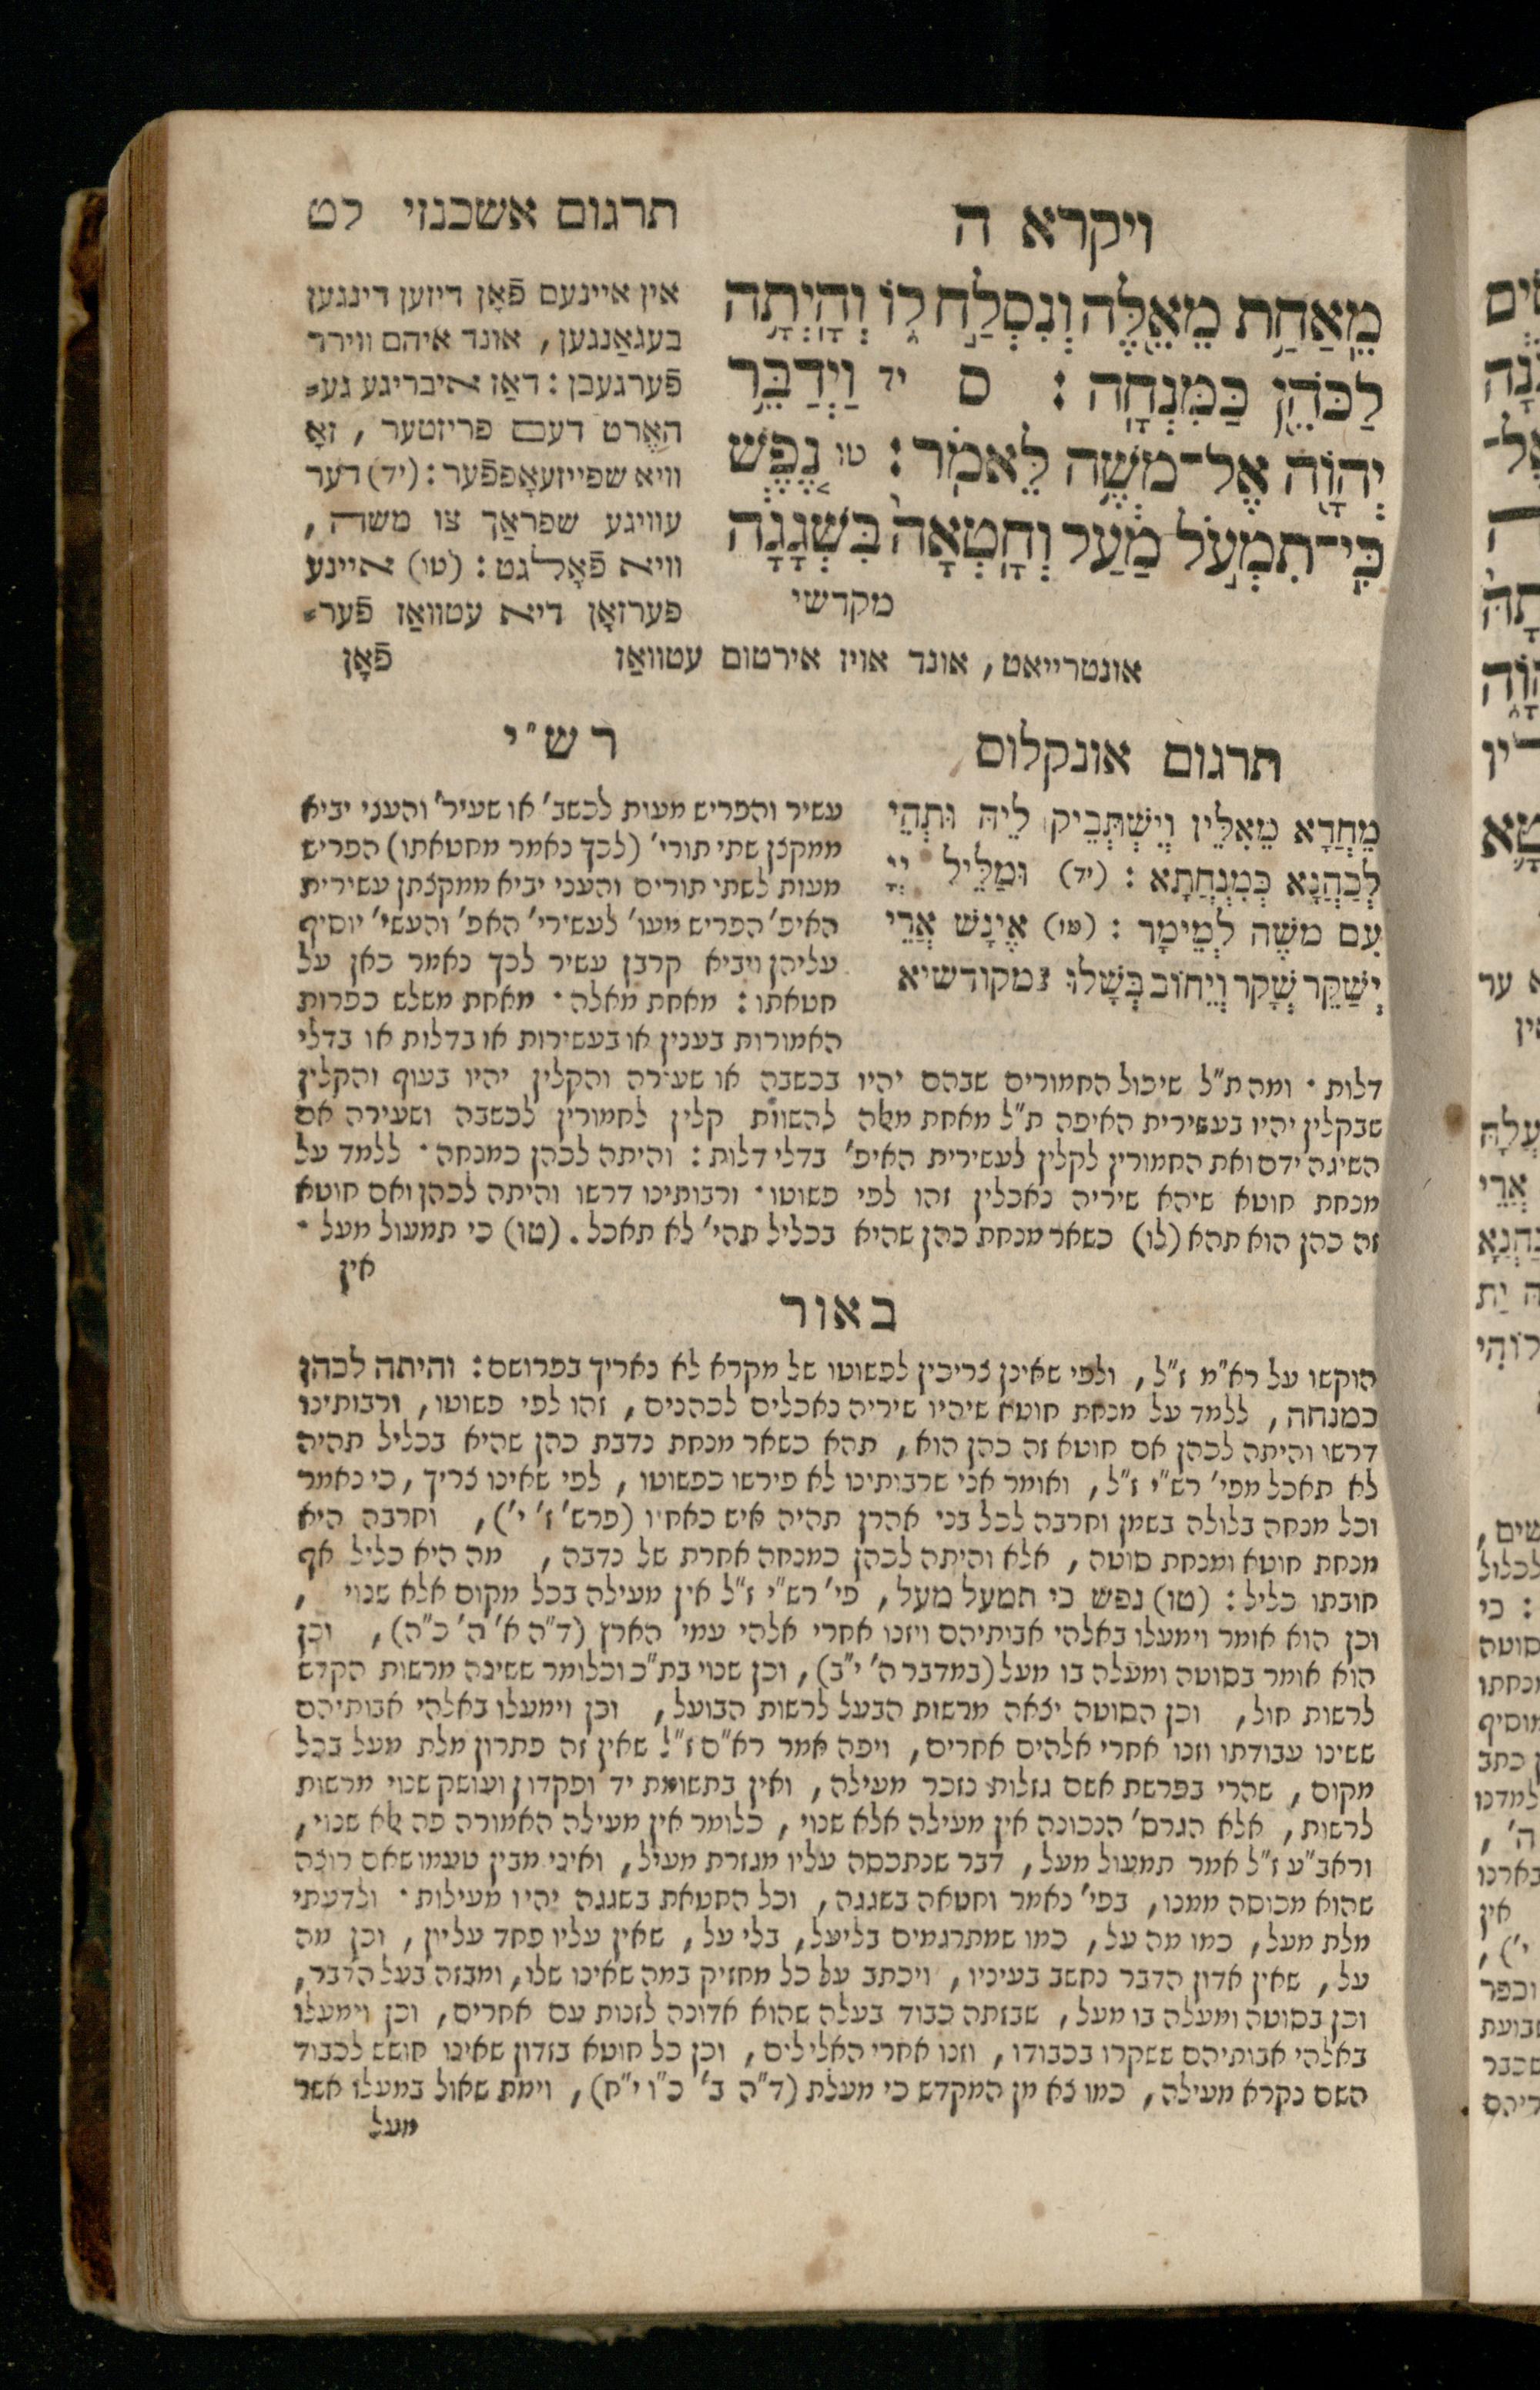 ויקרא ה
מֵאַחַת מֵאֵלֶּה וְנִסְלַח לוֹ וְהָיְתָה
לַכֹּהֵן כַּמִּנְחָה : ס יד וַיְדַבֵּר
יְהוָֹה אֶל־מֹשֶׁה לֵּאמֹר : טו נֶפֶשׁ
כִּי־תִמְעֹל מַעַל וְחָטְאָה בִּשְׁגָגָה
מקדשי
תרגום אשכנזי לט
אין איינעם פֿאָן דיזען דינגען
בעגאַנגען, אונד איהם ווירד
פֿערגעבן : דאַז איבריגע גע=
האֶרט דעם פריזטער, זאָ
וויא שפייזעאָפפֿער : (יד) דער
עוויגע שפראַך צו משה,
וויא פֿאָלגט : (טו) איינע
פערזאָן דיא עטוואַז פֿער=
אונטרייאט, אונד אויז אירטום עטוואַז פֿאָן
תרגום אונקלוס
מֵחֲדָא מֵאִלֵּין וְיִשְׁתְּבֵיק לֵיהּ וּתְהֵי
לְכַהֲנָא כְּמִנְחֲתָא : (יד) וּמַלֵּיל יְיָ
עִם מֹשֶׁה לְמֵימָר : (טו) אֱינָשׁ אֲרֵי
יְשַׁקֵּר שְׁקַר וְיֵחוֹב בְּשָׁלוּ מקודשיא
רש"י
עשיר והפריש מעות לכשב' או שעיר' והעני יביא
ממקצן שתי תורי' (לכך נאמר מחטאתו) הפריש
מעות לשתי תורים והעני יביא ממקצתן עשירית
האיפ' הפריש מעו' לעשירי' האפ' והעשי' יוסיף
עליהן ויביא קרבן עשיר לכך נאמר כאן על
חטאתו : מאחת מאלה · מאחת משלש כפרות
האמורות בענין או בעשירות או בדלות או בדלי
דלות · ומה ת"ל שיכול החמורים שבהם יהיו בכשבה או שעירה והקלין יהיו בעוף והקלין
שבקלין יהיו בעשירית האיפה ת"ל מאחת מאלה להשוות קלין לחמורין לכשבה ושעירה אם
השיגה ידם ואת החמורין לקלין לעשירית האיפ' בדלי דלות : והיתה לכהן כמנחה · ללמד על
מנחת חוטא שיהא שיריה נאכלין זהו לפי פשוטו · ורבותינו דרשו והיתה לכהן ואם חוטא
זה כהן הוא תהא (לו) כשאר מנחת כהן שהיא בכליל תהי' לא תאכל. (טו) כי תמעול מעל ·
אין
באור
הוקשו על רא"מ ז"ל, ולפי שאינן צריכין לפשוטו של מקרא לא נאריך בפרושם : והיתה לכהן
כמנחה, ללמד על מנחת חוטא שיהיו שיריה נאכלים לכהנים, זהו לפי פשוטו, ורבותינו
דרשו והיתה לכהן אם חוטא זה כהן הוא, תהא כשאר מנחת נדבת כהן שהיא בכליל תהיה
לא תאכל מפי' רש"י ז"ל, ואומר אני שרבותינו לא פירשו כפשוטו, לפי שאינו צריך, כי נאמר
וכל מנחה בלולה בשמן וחרבה לכל בני אהרן תהיה איש כאחיו (פרש' ז' י'), וחרבה היא
מנחת חוטא ומנחת סוטה, אלא והיתה לכהן כמנחה אחרת של נדבה, מה היא כליל אף
חובתו כליל : (טו) נפש כי תמעל מעל, פי' רש"י ז"ל אין מעילה בכל מקום אלא שנוי,
וכן הוא אומר וימעלו באלהי אבותיהם ויזנו אחרי אלהי עמי הארץ (ד"ה א' ה' כ"ה), וכן
הוא אומר בסוטה ומעלה בו מעל (במדבר ה' י"ב), וכן שנוי בת"כ וכלומר ששינה מרשות הקדש
לרשות חול, וכן הסוטה יצאה מרשות הבעל לרשות הבועל, וכן וימעלו באלהי אבותיהם
ששינו עבודתו וזנו אחרי אלהים אחרים, ויפה אמר רא"ם ז"ל שאין זה פתרון מלת מעל בכל
מקום, שהרי בפרשת אשם גזלות נזכר מעילה, ואין בתשומת יד ופקדון ועושק שנוי מרשות
לרשות, אלא הגרס' הנכונה אין מעילה אלא שנוי, כלומר אין מעילה האמורה פה אלא שנוי,
וראב"ע ז"ל אמר תמעול מעל, דבר שנתכסה עליו מגזרת מעיל, ואיני מבין טעמו שאם רוצה
שהוא מכוסה ממנו, בפי' נאמר וחטאה בשגגה, וכל החטאת בשגגה יהיו מעילות · ולדעתי
מלת מעל, כמו מה על, כמו שמתרגמים בליעל, בלי על, שאין עליו פחד עליון, וכן מה
על, שאין אדון הדבר נחשב בעיניו, ויכתב על כל מחזיק במה שאינו שלו, ומבזה בעל הדבר,
וכן בסוטה ומעלה בו מעל, שבזתה כבוד בעלה שהוא אדונה לזנות עם אחרים, וכן וימעלו
באלהי אבותיהם ששקרו בכבודו, וזנו אחרי האלילים, וכן כל חוטא בזדון שאינו חושש לכבוד
השם נקרא מעילה, כמו צא מן המקדש כי מעלת (ד"ה ב' כ"ו י"ח), וימת שאול במעלו אשר
מעל